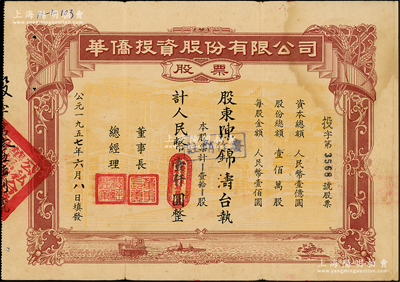 華僑投資股份有限公司
股票
投字第3568號股票
資本總額 人民幣壹億圓
股份總額 壹佰萬股
每股金額 人民幣壹佰圓
股東陳錦濤台執
本股票計壹拾股
計人民幣壹仟圓整
董事長
總經理
公元一九五七年六月八日填發
上海陽明拍賣
www.yangmingauction.com